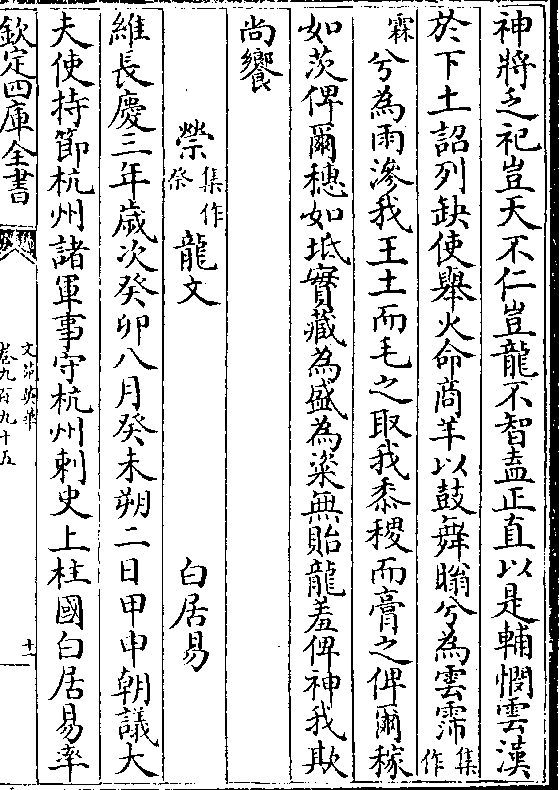 神將乏祀豈天不仁豈龍不智盍正直以是輔憫雲漢
於下土詔列缺使舉火命商羊以鼓舞滃兮為雲霈集作
霖兮為雨滲我王土而毛之取我黍稷而膏之俾爾稼
如茨俾爾穗如坻實藏為盛為粢無貽龍羞俾神我欺
尚饗
禜集作祭龍文 白居易
維長慶三年歲次癸卯八月癸未朔二日甲申朝議大
夫使持節杭州諸軍事守杭州刺史上柱國白居易率
欽定四庫全書
文苑英華
卷九百九十五
十一